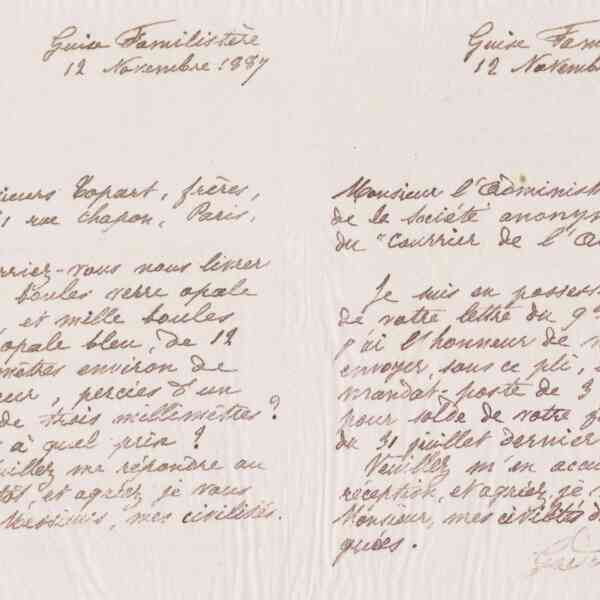 Guise Familistère
12 Novembre 1887
sieurs Topart, frères,
rue Chapon, Paris.
rriez-vous nous livrer
boules verre opale
et mille boules
opale bleu, de 12
mètres environ de
eur, percées d'un
de trois millimètres ?
à quel prix ?
uillez me répondre au
tôt et agréez, je vous
Messieurs, mes civilités.
Guise Fam
12 Novemb
Monsieur l'Administ
de la Société anonym
du "Courrier de l'A
Je suis en possess
de votre lettre du 9
j'ai l'honneur de
envoyer, sous ce pli,
mandat-poste de 3
pour solde de votre f
du 31 juillet dernier
Veuillez m'en accu
réception, et agréez, je
Monsieur, mes civilités d
guées.